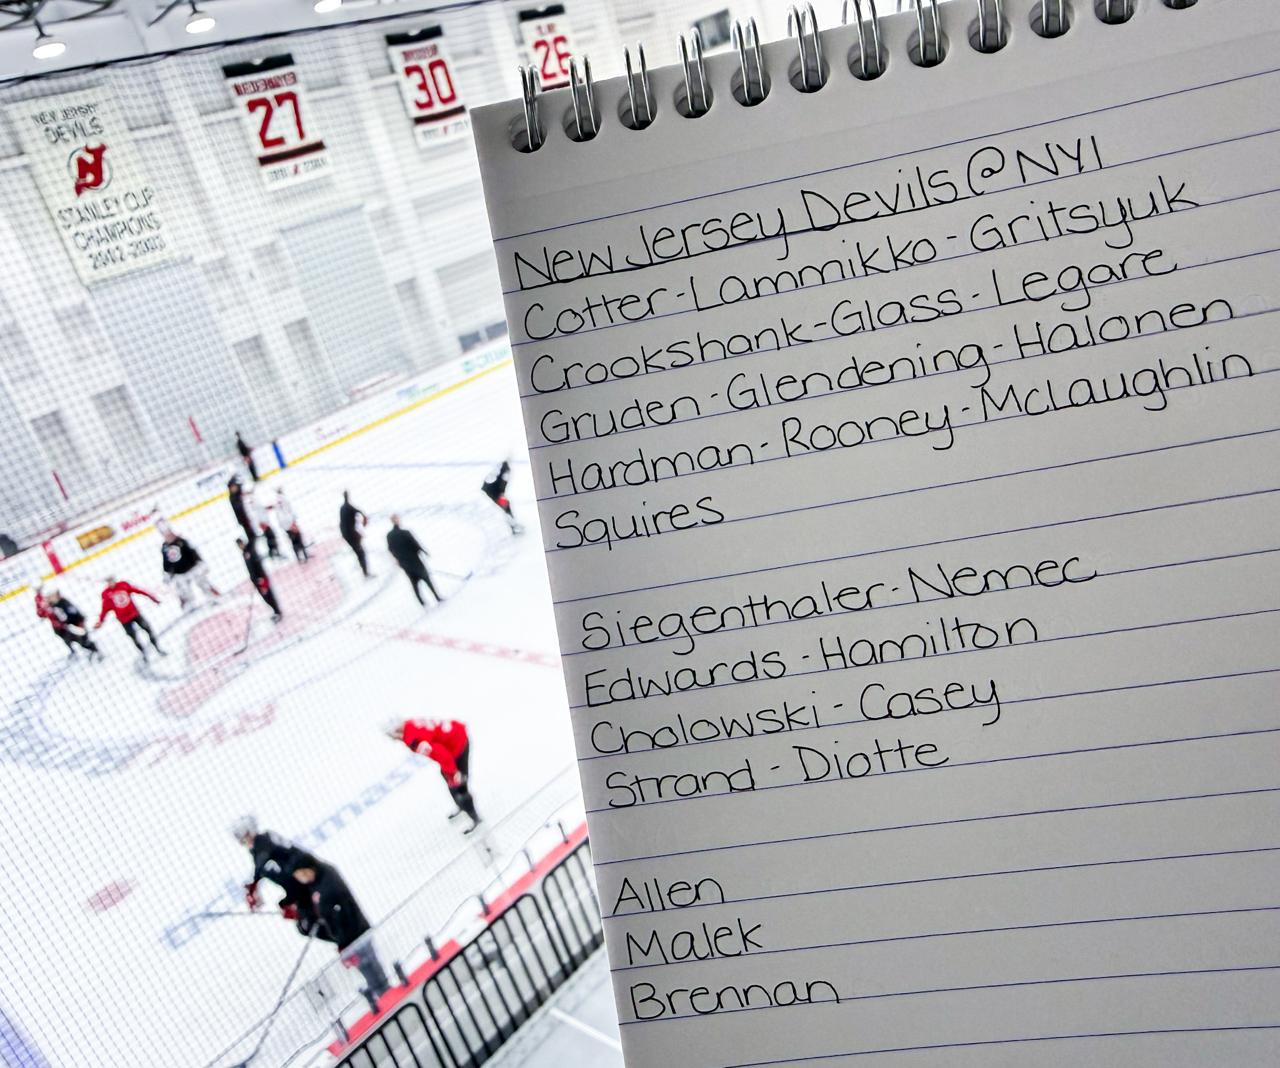 NEW JERSEY
DEVILS
STANLEY CUP
CHAMPIONS
27
30
26
New Jersey Devils @ NYI
Cotter - Lammikko - Gritsyuk
Crookshank - Glass - Legare
Gruden - Glendening - Halonen
Hardman - Rooney - McLaughlin
Squires
Siegenthaler - Nemec
Edwards - Hamilton
Cholowski - Casey
Strand - Diotte
Allen
Malek
Brennan